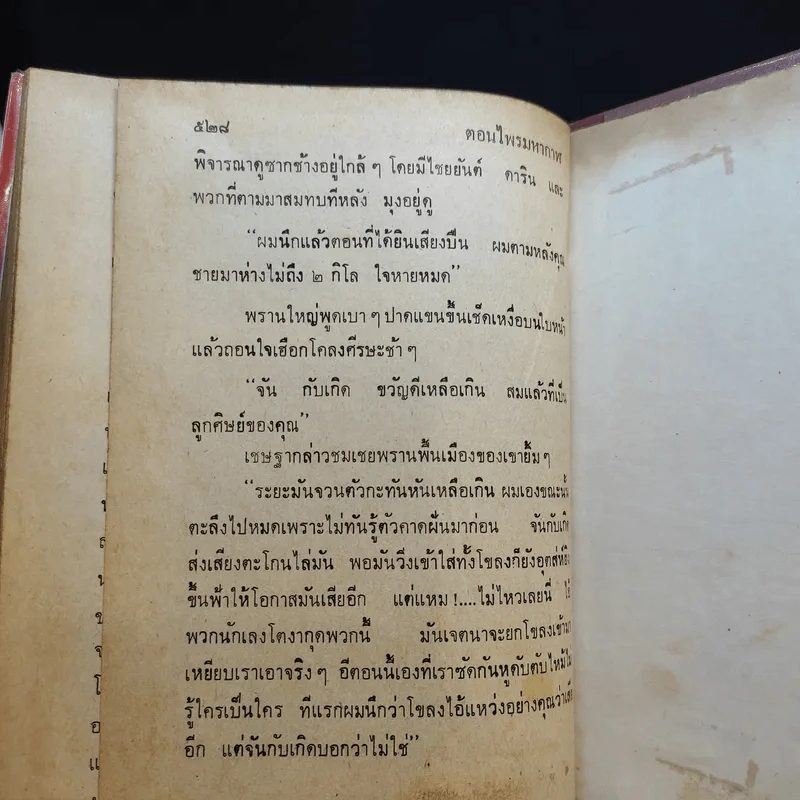 ๕๒๘
ตอนไพรมหากาฬ
พิจารณาดูซากช้างอยู่ใกล้ ๆ โดยมีไชยยันต์ ดาริน และ
พวกที่ตามมาสมทบทีหลัง มุงอยู่ดู
“ผมนึกแล้วตอนที่ได้ยินเสียงปืน ผมตามหลังคุณ
ชายมาห่างไม่ถึง ๒ กิโล ใจหายหมด”
พรานใหญ่พูดเบา ๆ ปาดแขนขึ้นเช็ดเหงื่อบนใบหน้า
แล้วถอนใจเฮือกโคลงศีรษะช้า ๆ
“จัน กับเกิด ขวัญดีเหลือเกิน สมแล้วที่เป็น
ลูกศิษย์ของคุณ”
เชษฐากล่าวชมเชยพรานพื้นเมืองของเขายิ้ม ๆ
“ระยะมันจวนตัวกะทันหันเหลือเกิน ผมเองขณะนั้น
ตะลึงไปหมดเพราะไม่ทันรู้ตัวคาดฝันมาก่อน จันกับเกิด
ส่งเสียงตะโกนไล่มัน พอมันวิ่งเข้าใส่ทั้งโขลงก็ยังอุตส่ห์ยิง
ขึ้นฟ้าให้โอกาสมันเสียอีก แต่แหม !....ไม่ไหวเลยนี่
พวกนักเลงโตงากุดพวกนี้ มันเจตนาจะยกโขลงเข้ามา
เหยียบเราเอาจริง ๆ อีตอนนี้เองที่เราซัดกันหูดับตับไหม้ไม่
รู้ใครเป็นใคร ทีแรกผมนึกว่าโขลงไอ้แหว่งอย่างคุณว่าเสีย
อีก แต่จันกับเกิดบอกว่าไม่ใช่”